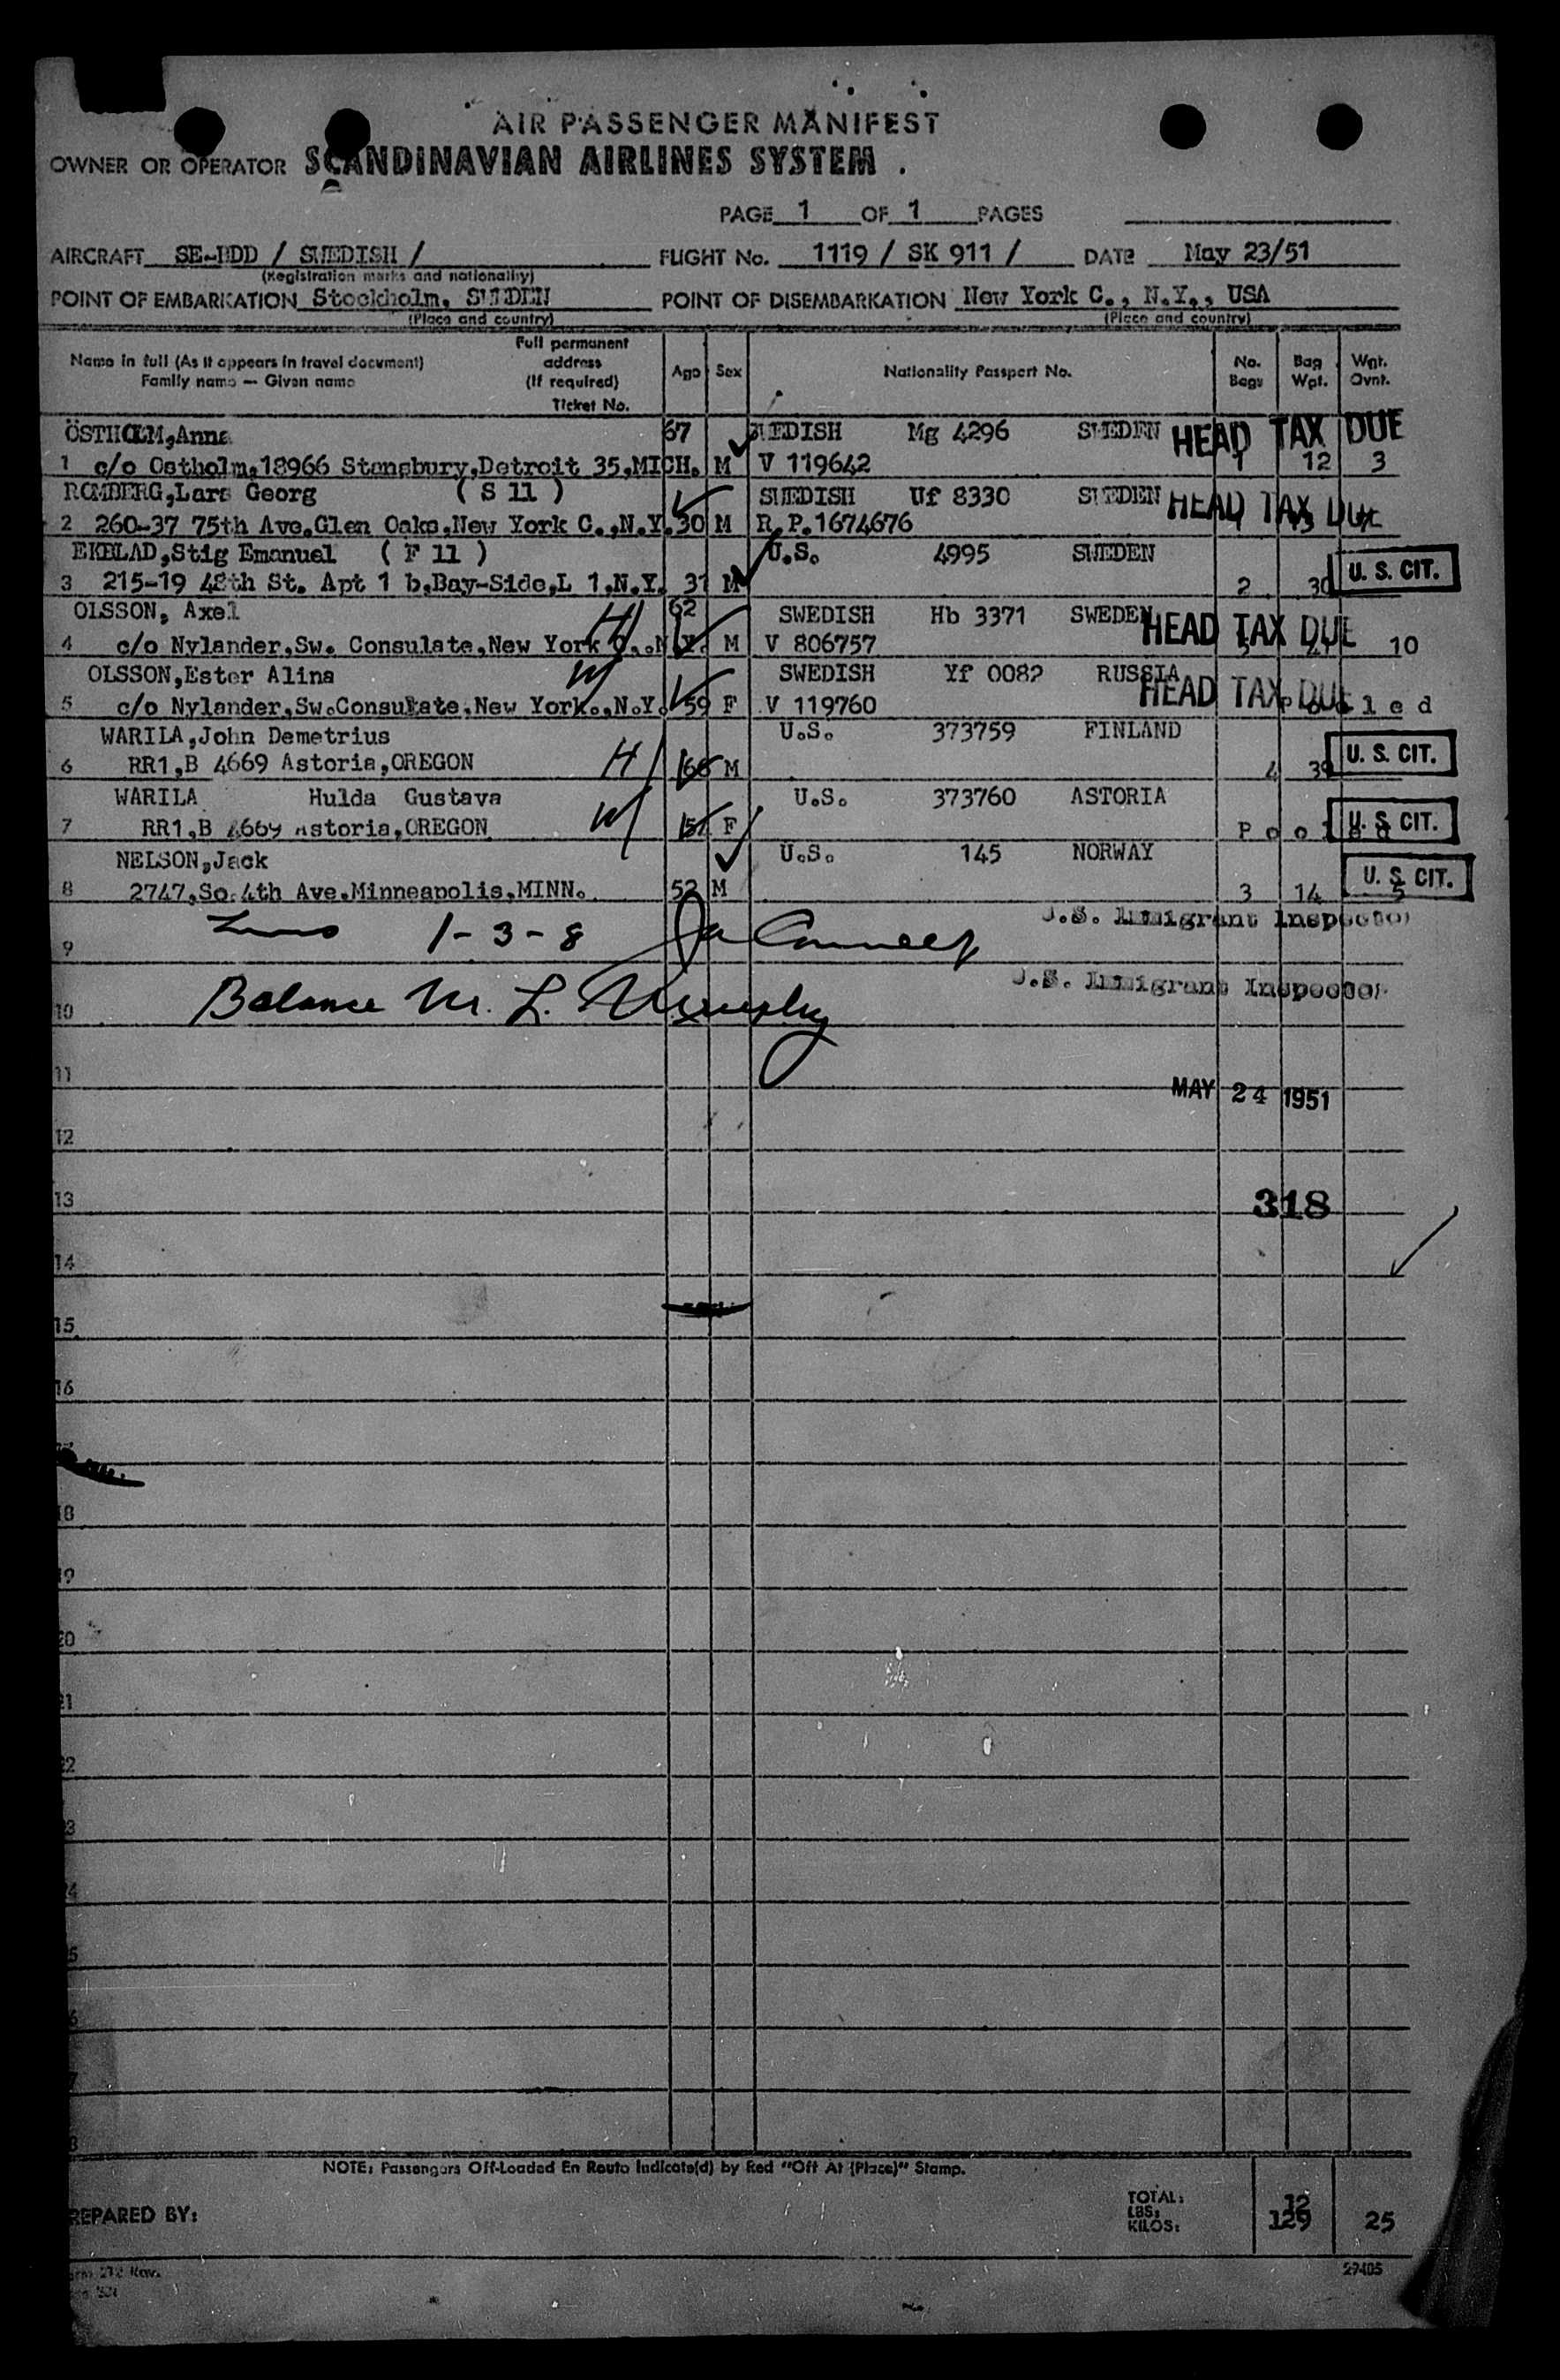 AIR PASSENGER MANIFEST
OWNER OR OPERATOR SCANDINAVIAN AIRLINES SYSTEM .
PAGE 1 OF 1 PAGES
AIRCRAFT SE-BDD / SWEDISH / FLIGHT No. 1119 / SK 911 / DATE May 23/51
(Registration marks and nationality)
POINT OF EMBARKATION Stockholm, SWEDEN POINT OF DISEMBARKATION New York C., N.Y., USA
(Place and country) (Place and country)
Name in full (As it appears in travel document) Family name — Given name Full permanent address (If required) Ticket No. Age Sex Nationality Passport No. No. Bags Bag Wgt. Wgt. Ovnt.
ÖSTHOLM,Anna 67 SWEDISH Mg 4296 SWEDEN HEAD TAX DUE
1 c/o Ostholm,18966 Stansbury,Detroit 35,MICH. M V 119642 1 12 3
ROMBERG,Lars Georg ( S 11 ) SWEDISH Uf 8330 SWEDEN HEAD TAX DUE
2 260-37 75th Ave.Glen Oaks,New York C.,N.Y. 30 M R.P.1674676
EKBLAD,Stig Emanuel ( F 11 ) U.S. 4995 SWEDEN
3 215-19 48th St. Apt 1 b,Bay-Side,L 1,N.Y. 31 M 2 30 U. S. CIT.
OLSSON, Axel 62 SWEDISH Hb 3371 SWEDEN HEAD TAX DUE
4 c/o Nylander,Sw. Consulate,New York C.,N.Y. M V 806757 10
H
OLSSON,Ester Alina SWEDISH Yf 0082 RUSSIA HEAD TAX DUE
5 c/o Nylander,Sw.Consulate,New York.,N.Y. 59 F V 119760 Pooled
W
WARILA,John Demetrius U.S. 373759 FINLAND
6 RR1,B 4669 Astoria,OREGON H 66 M 4 U. S. CIT.
WARILA Hulda Gustava U.S. 373760 ASTORIA
7 RR1,B 4669 Astoria,OREGON W F Pooled U. S. CIT.
NELSON,Jack U.S. 145 NORWAY
8 2747,So.4th Ave.Minneapolis,MINN. 52 M 3 14 5 U. S. CIT.
U.S. Immigrant Inspector
9 1-3-8
U.S. Immigrant Inspector
10 Balance M. L.
11
MAY 24 1951
12
13 318
14
15
16
18
19
20
21
22
23
24
NOTE: Passengers Off-Loaded En Route Indicate(d) by Red "Off At (Place)" Stamp.
PREPARED BY:
TOTAL: 12
LBS:
KILOS: 129 25
29405